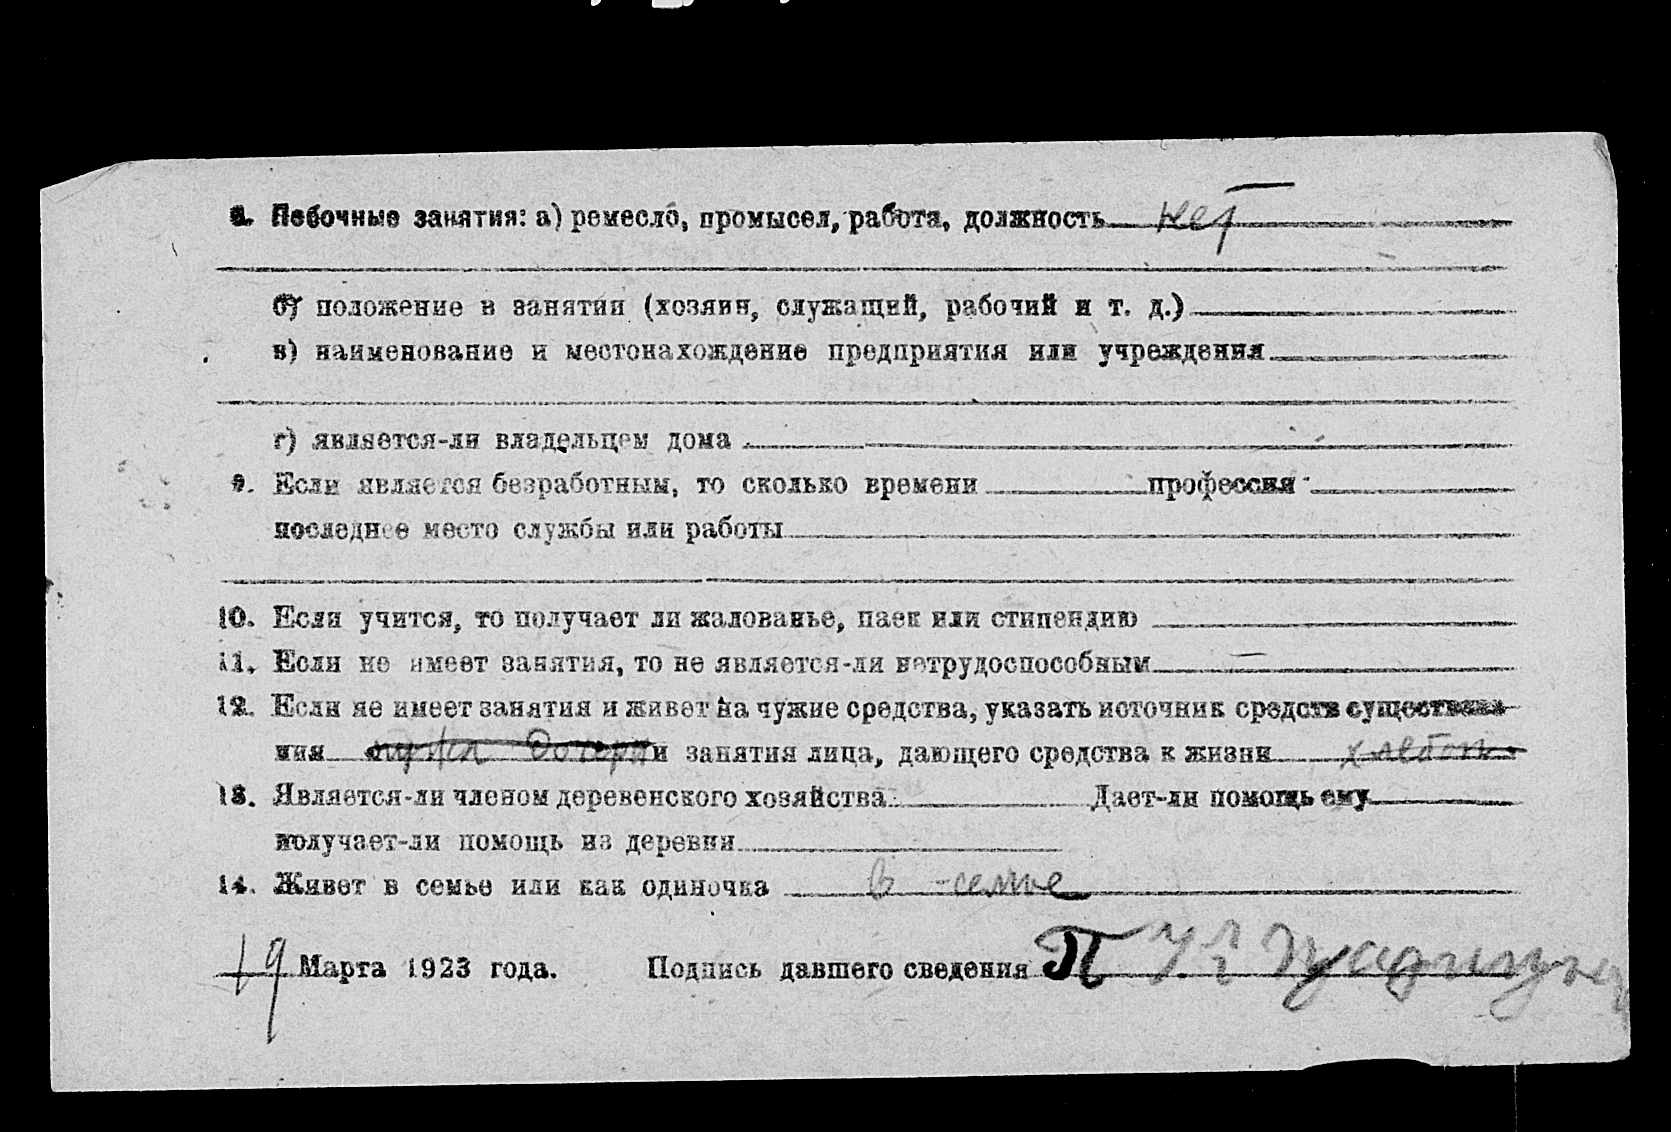 8. Побочные занятия: а) ремесло, промысел, работа, должность нет
б) положение в занятии (хозяин, служащий, рабочий и т. д.)
в) наименование и местонахождение предприятия или учреждения
г) является-ли владельцем дома
9. Если является безработным, то сколько времени профессия
последнее место службы или работы
10. Если учится, то получает ли жалованье, паек или стипендию
11. Если не имеет занятия, то не является-ли нетрудоспособным —
12. Если не имеет занятия и живет на чужие средства, указать источник средств существова-
ния и занятия лица, дающего средства к жизни
13. Является-ли членом деревенского хозяйства Дает-ли помощь ему
получает-ли помощь из деревни
14. Живет в семье или как одиночка в семье
19 Марта 1923 года. Подпись давшего сведения